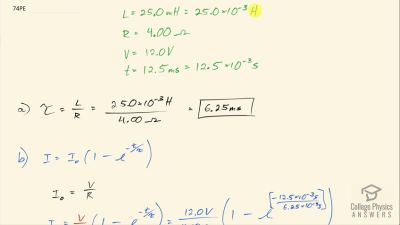 74PE
L = 25.0 mH = 25.0×10⁻³ H
R = 4.00 Ω
V = 12.0V
t = 12.5 ms = 12.5×10⁻³ s
a) τ = L/R = 25.0×10⁻³ H / 4.00 Ω = 6.25 ms
b) I = I₀ (1 − e^(−t/τ))
I₀ = V/R
I = V/R (1 − e^(−t/τ)) = 12.0V (1 − e^[−12.5×10⁻³s / 6.25×10⁻³s])
College Physics
ANSWERS